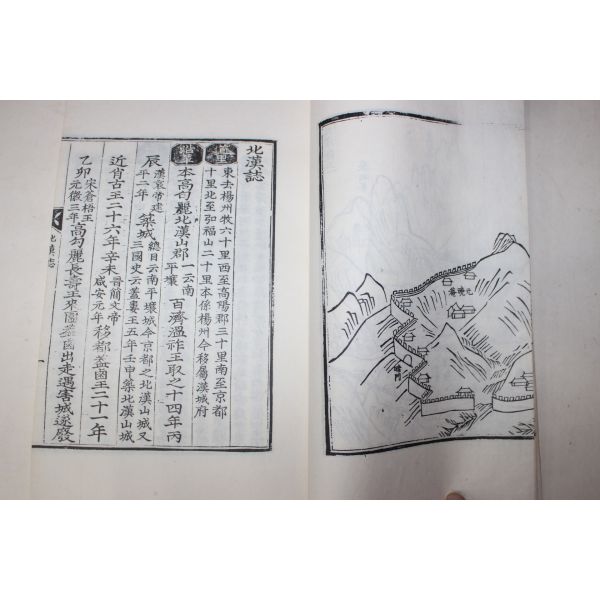 北漢誌
道里
東去楊州牧六十里西至高陽郡三十里南至京都
十里北至弘福山二十里本係楊州今移屬漢城府
沿革
本高句麗北漢山郡一云南平壤百濟溫祚王取之十四年丙
辰漢哀帝建平二年築城總目云南平壤城今京都之北漢山城又三國史云蓋婁王五年壬申築北漢山城
近肖古王二十六年辛未晉簡文帝咸安元年移都蓋鹵王二十一年
乙卯宋蒼梧王元徽三年高句麗長壽王來圍蓋鹵出走遇害城遂廢
北漢誌
元曉菴
暗門